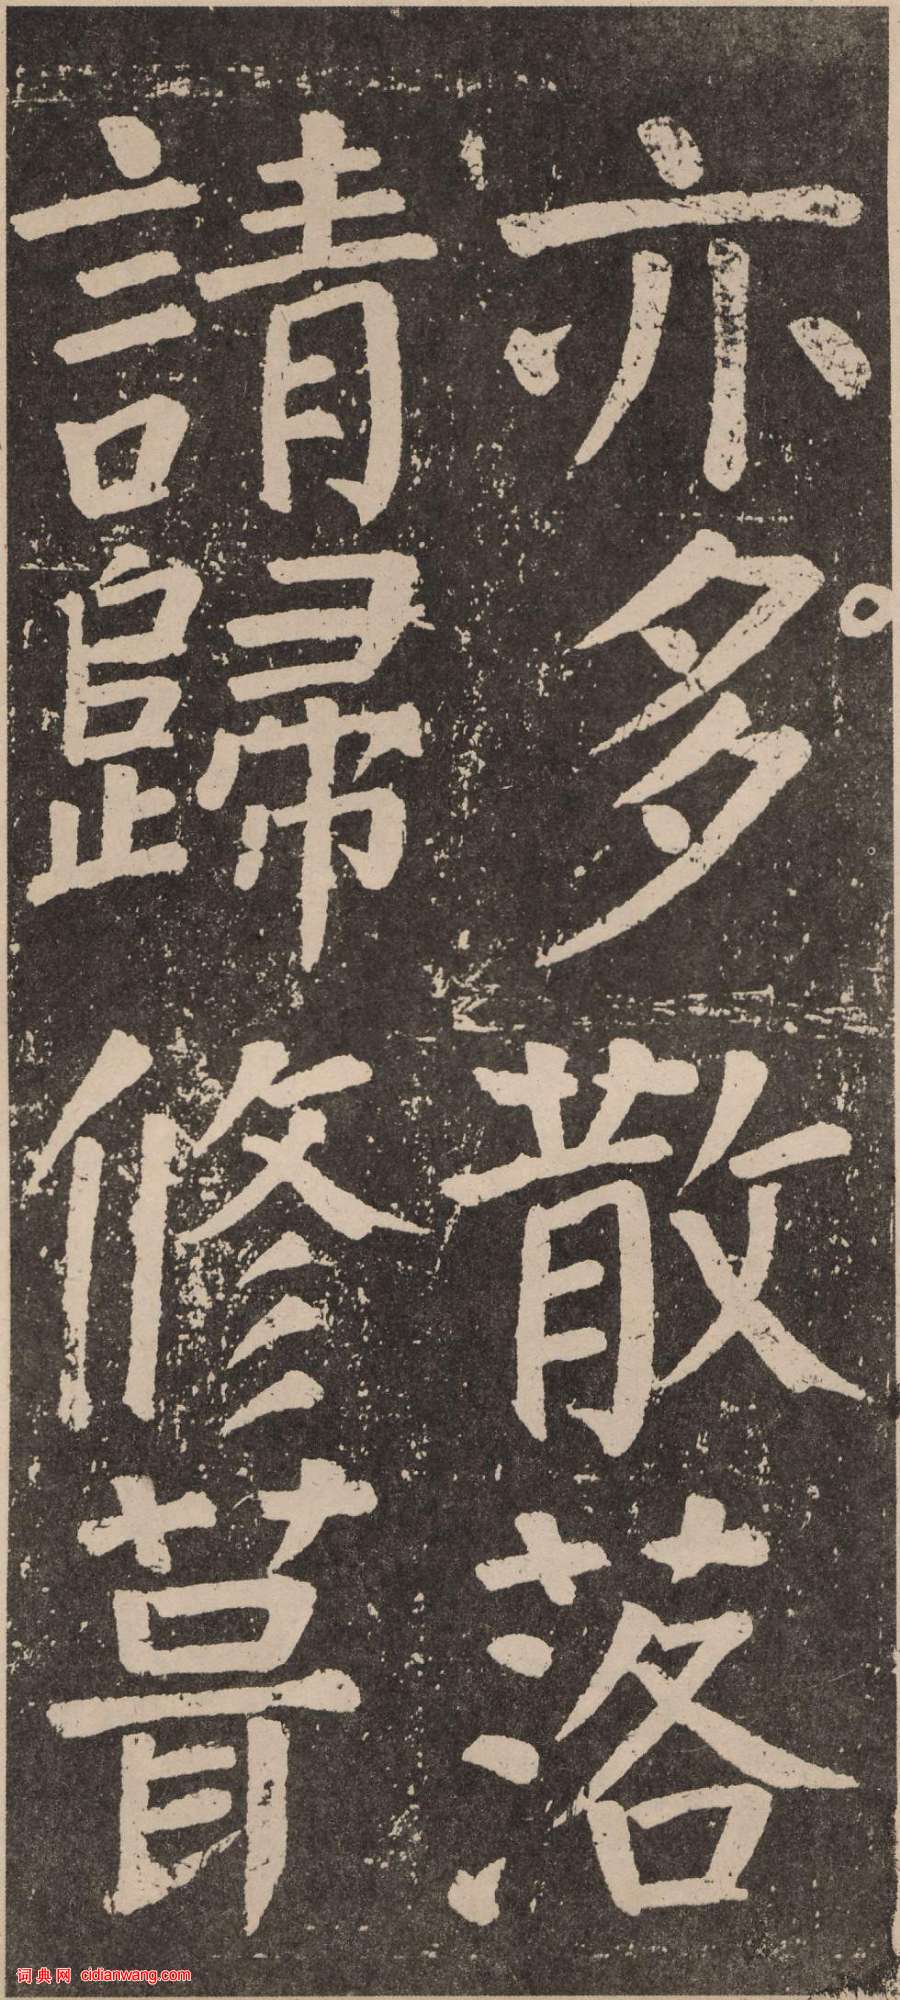 亦多散落
請歸修葺
词典网 cidianwang.com